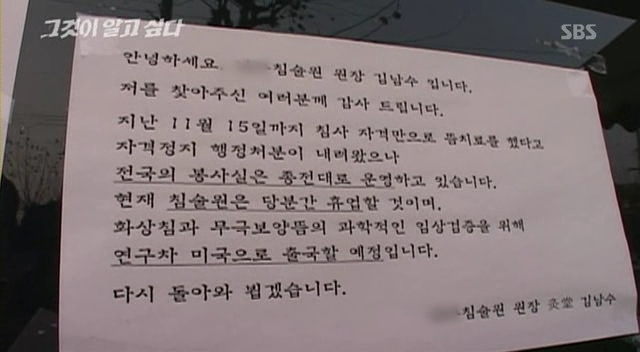 그것이 알고 싶다
SBS
안녕하세요 침술원 원장 김남수 입니다.
저를 찾아주신 여러분께 감사 드립니다.
지난 11월 15일까지 침사 자격만으로 뜸치료를 했다고
자격정지 행정처분이 내려왔으나
전국의 봉사실은 종전대로 운영하고 있습니다.
현재 침술원은 당분간 휴업할 것이며.
화상침과 무극보양뜸의 과학적인 임상검증을 위해
연구차 미국으로 출국할 예정입니다.
다시 돌아와 뵙겠습니다.
침술원 원장 灸堂 김남수